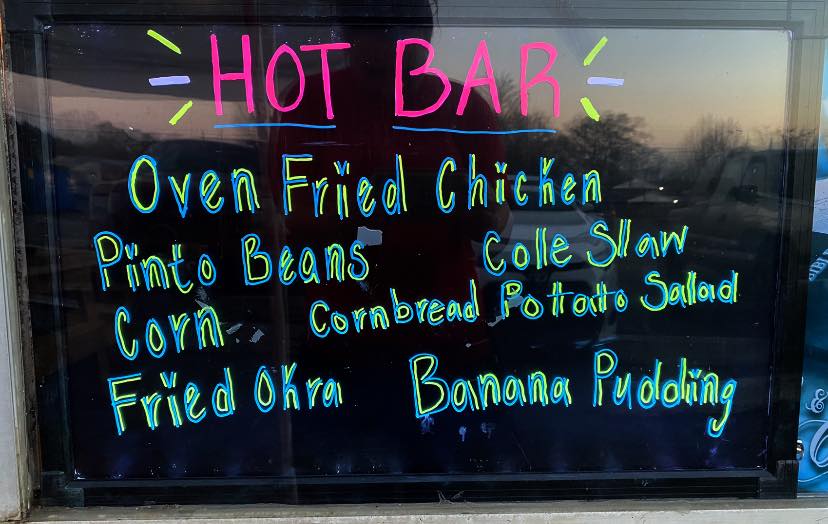 HOT BAR
Oven Fried Chicken
Pinto Beans Cole Slaw
Corn Cornbread Potato Salad
Fried Okra Banana Pudding